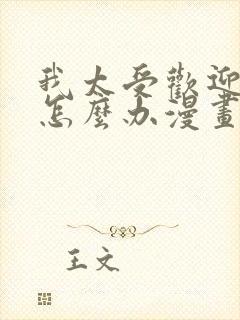 我太受歡迎
怎麼办漫畫
王文